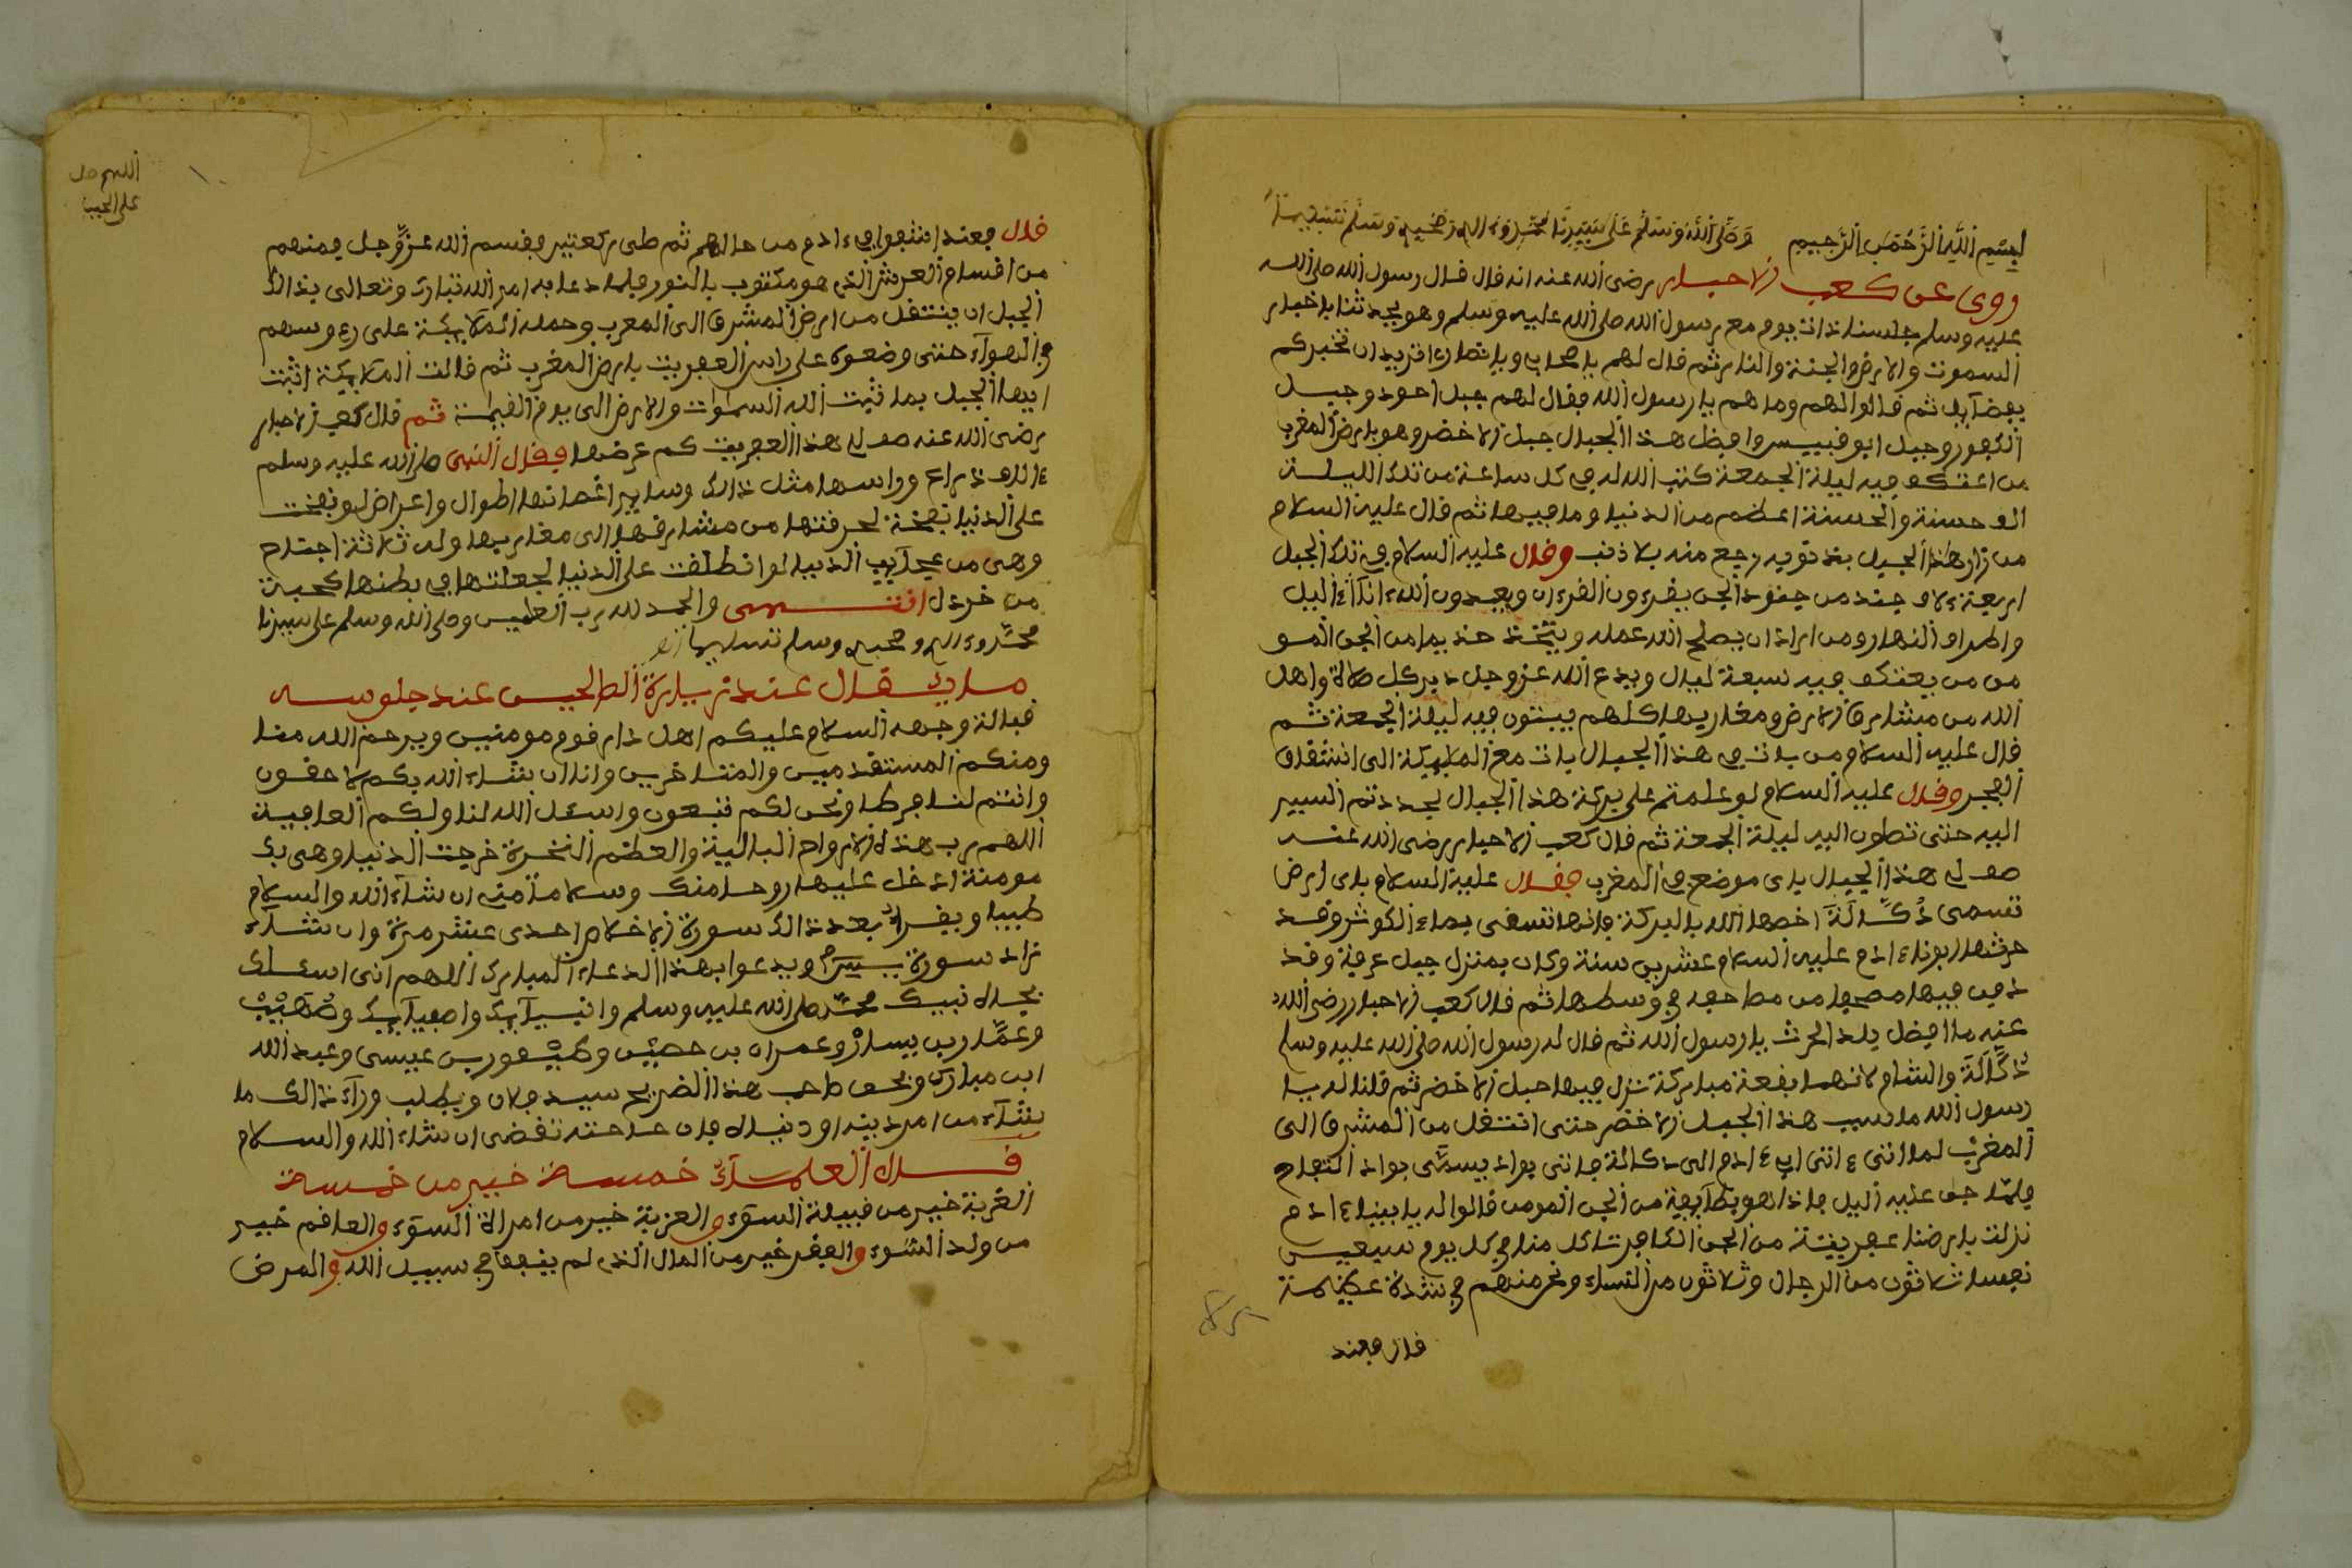 بسم الله الرحمن الرحيم وصلى الله وسلم على سيدنا محمد وءاله وصحبه وسلم تسليما
روى عن كعب الاحبار رضى الله عنه انه قال قال رسول الله صلى الله
عليه وسلم جلسنا ذات يوم مع رسول الله صلى الله عليه وسلم وهو يحدثنا باخبار
السموت والارض والجنة والنار ثم قال لهم يا اصحابى ويا انصارى اتريدان نخبركم
بفضآيل ثم قالوا لهم وما هم يا رسول الله فقال لهم جبل احود وجبل
الطور وجبل ابو قبيس وافضل هذا الجبال جبل الاخضر وهو بارض المغرب
من اعتكف فيه ليلة الجمعة كتب الله له فى كل ساعة من تلك الليلة
الف حسنة والحسنة اعظم من الدنيا وما فيها ثم قال عليه السلام
من زار هذا الجبل بذنوبه رجع منه بلا ذنب وقال عليه السلام فى تلك الجبل
اربعة ءلاف جند من جنود الجن يقرءون القرءان ويعبدون الله ءاناء اليل
واطراف النهار ومن اراد ان يصلح الله عمله ويتخذ خديما من الجن المو
من من يعتكف فيه سبعة ليال ويدع الله عز وجل دبر كل صلاة واهل
الله من مشارق الارض ومغاربها كلهم يبيتون فيه ليلة الجمعة ثم
قال عليه السلام من بات فى هذا الجبال بات مع الملايكة الى انشقاق
الفجر وقال عليه السلام لو علمتم على بركة هذا الجبال لجددتم السير
اليه حتى تصلون اليه ليلة الجمعة ثم قال كعب الاحبار رضى الله عنه
صف لى هذا الجبال باى موضع فى المغرب فقال عليه السلام باى ارض
تسمى دكالة اخصها الله بالبركة فانها تسقى بماء الكوثر وقد
حرثها ابونا ءادم عليه السلام عشرين سنة وكان بمنزل جبل عرفة وقد
دفن فيها مصحفا من مصاحفه فى وسطها ثم قال كعب الاحبار رضى الله
عنه ما افضل بلد الحرث يا رسول الله ثم قال له رسول الله صلى الله عليه وسلم
دكالة والشام لانهما بقعة مباركة نزل فيها جبل الاخضر ثم قلنا له يا
رسول الله ما سبب هذا الجبل الاخضر حتى انتقل من المشرق الى
المغرب لما اتى ءاتى ابى ءادم الى دكالة فاتى بواد يسمى بواد التفاح
فلما جن عليه اليل فاذا هو بطآيفة من الجن المومن قالوا له يا ابينا ءادم
نزلت بارضنا عفريتة من الجن الكافر تاكل منا فى كل يوم سبعين
نفسا ثلاثون من الرجال وثلاثون من النساء ونحن منهم فى شدة عظيمة
قال فعند
اللهم صل
على الحبيب
قال فعند انتفوا فى ءادم من حالهم ثم صلى ركعتين وقسم الله عز وجل قسم
من اقسام العرش الذى هو مكتوب بالنور فلما دعا به امر الله تبارك وتعالى بذالك
الجبل ان ينتقل من ارض المشرق الى المغرب وحمله الملايكة على رءوسهم
فى الهوآء حتى وضعوه على راس العفريت بارض المغرب ثم قالت الملايكة اثبت
ايها الجبل بما ثبت الله السموات والارض الى يوم القيامة ثم قال كعب الاحبار
رضى الله عنه صف لى هذا العفريت كم عرضها فقال النبى صلى الله عليه وسلم
ءالف ذراع وراسها مثل ذالك وساير اعضاتها اطوال واعراض لو نفخت
على الدنيا نفخة لحرقتها من مشارقها الى مغاربها وله ثلاثة اجناح
وهى من عجآيب الدنيا لو انطلقت على الدنيا لجعلتها فى بطنها كحبة
من خردل انتهى والحمد لله رب العلمين وصلى الله وسلم على سيدنا
محمد وءاله وصحبه وسلم تسليما
ما يقال عند زيارة الصالحين عند جلوسه
قبالة وجهه السلام عليكم اهل دار قوم مومنين ويرحم الله منا
ومنكم المستقدمين والمتاخرين وانا ان شاء الله بكم لاحقون
وانتم لنا فرطا ونحن لكم تبعون واسئل الله لنا ولكم العافية
اللهم رب هذه الارواح البالية والعظم النخرة خرجت الدنيا وهى بك
مومنة ادخل عليها روحا منك وسلاما منى ان شاء الله والسلام
طيبا ويقرا بعد ذالك سورة الاخلاص احدى عشر مرة وان شاء
زاد سورة يس ويدعوا بهذا الدعاء المبارك اللهم انى اسئلك
بجاه نبيك محمد صلى الله عليه وسلم وانبيآيك واصفيآيك وصهيب
وعمار بن يسار وعمران بن حصين وطيفور بن عيسى وعبد الله
ابن مبارك وبحق صاحب هذا الضريح سيد فلان ويطلب ورآء ذالك ما
يشآء من امر دينه او دنياه فان حاجته تقضى ان شاء الله والسلام
قال العلمآء خمسة خير من خمسة
الغربة خير من قبيلة السوء والعزبة خير من امراة السوء والعاقم خير
من ولد السوء والفقر خير من المال الذى لم ينفق فى سبيل الله والمرض